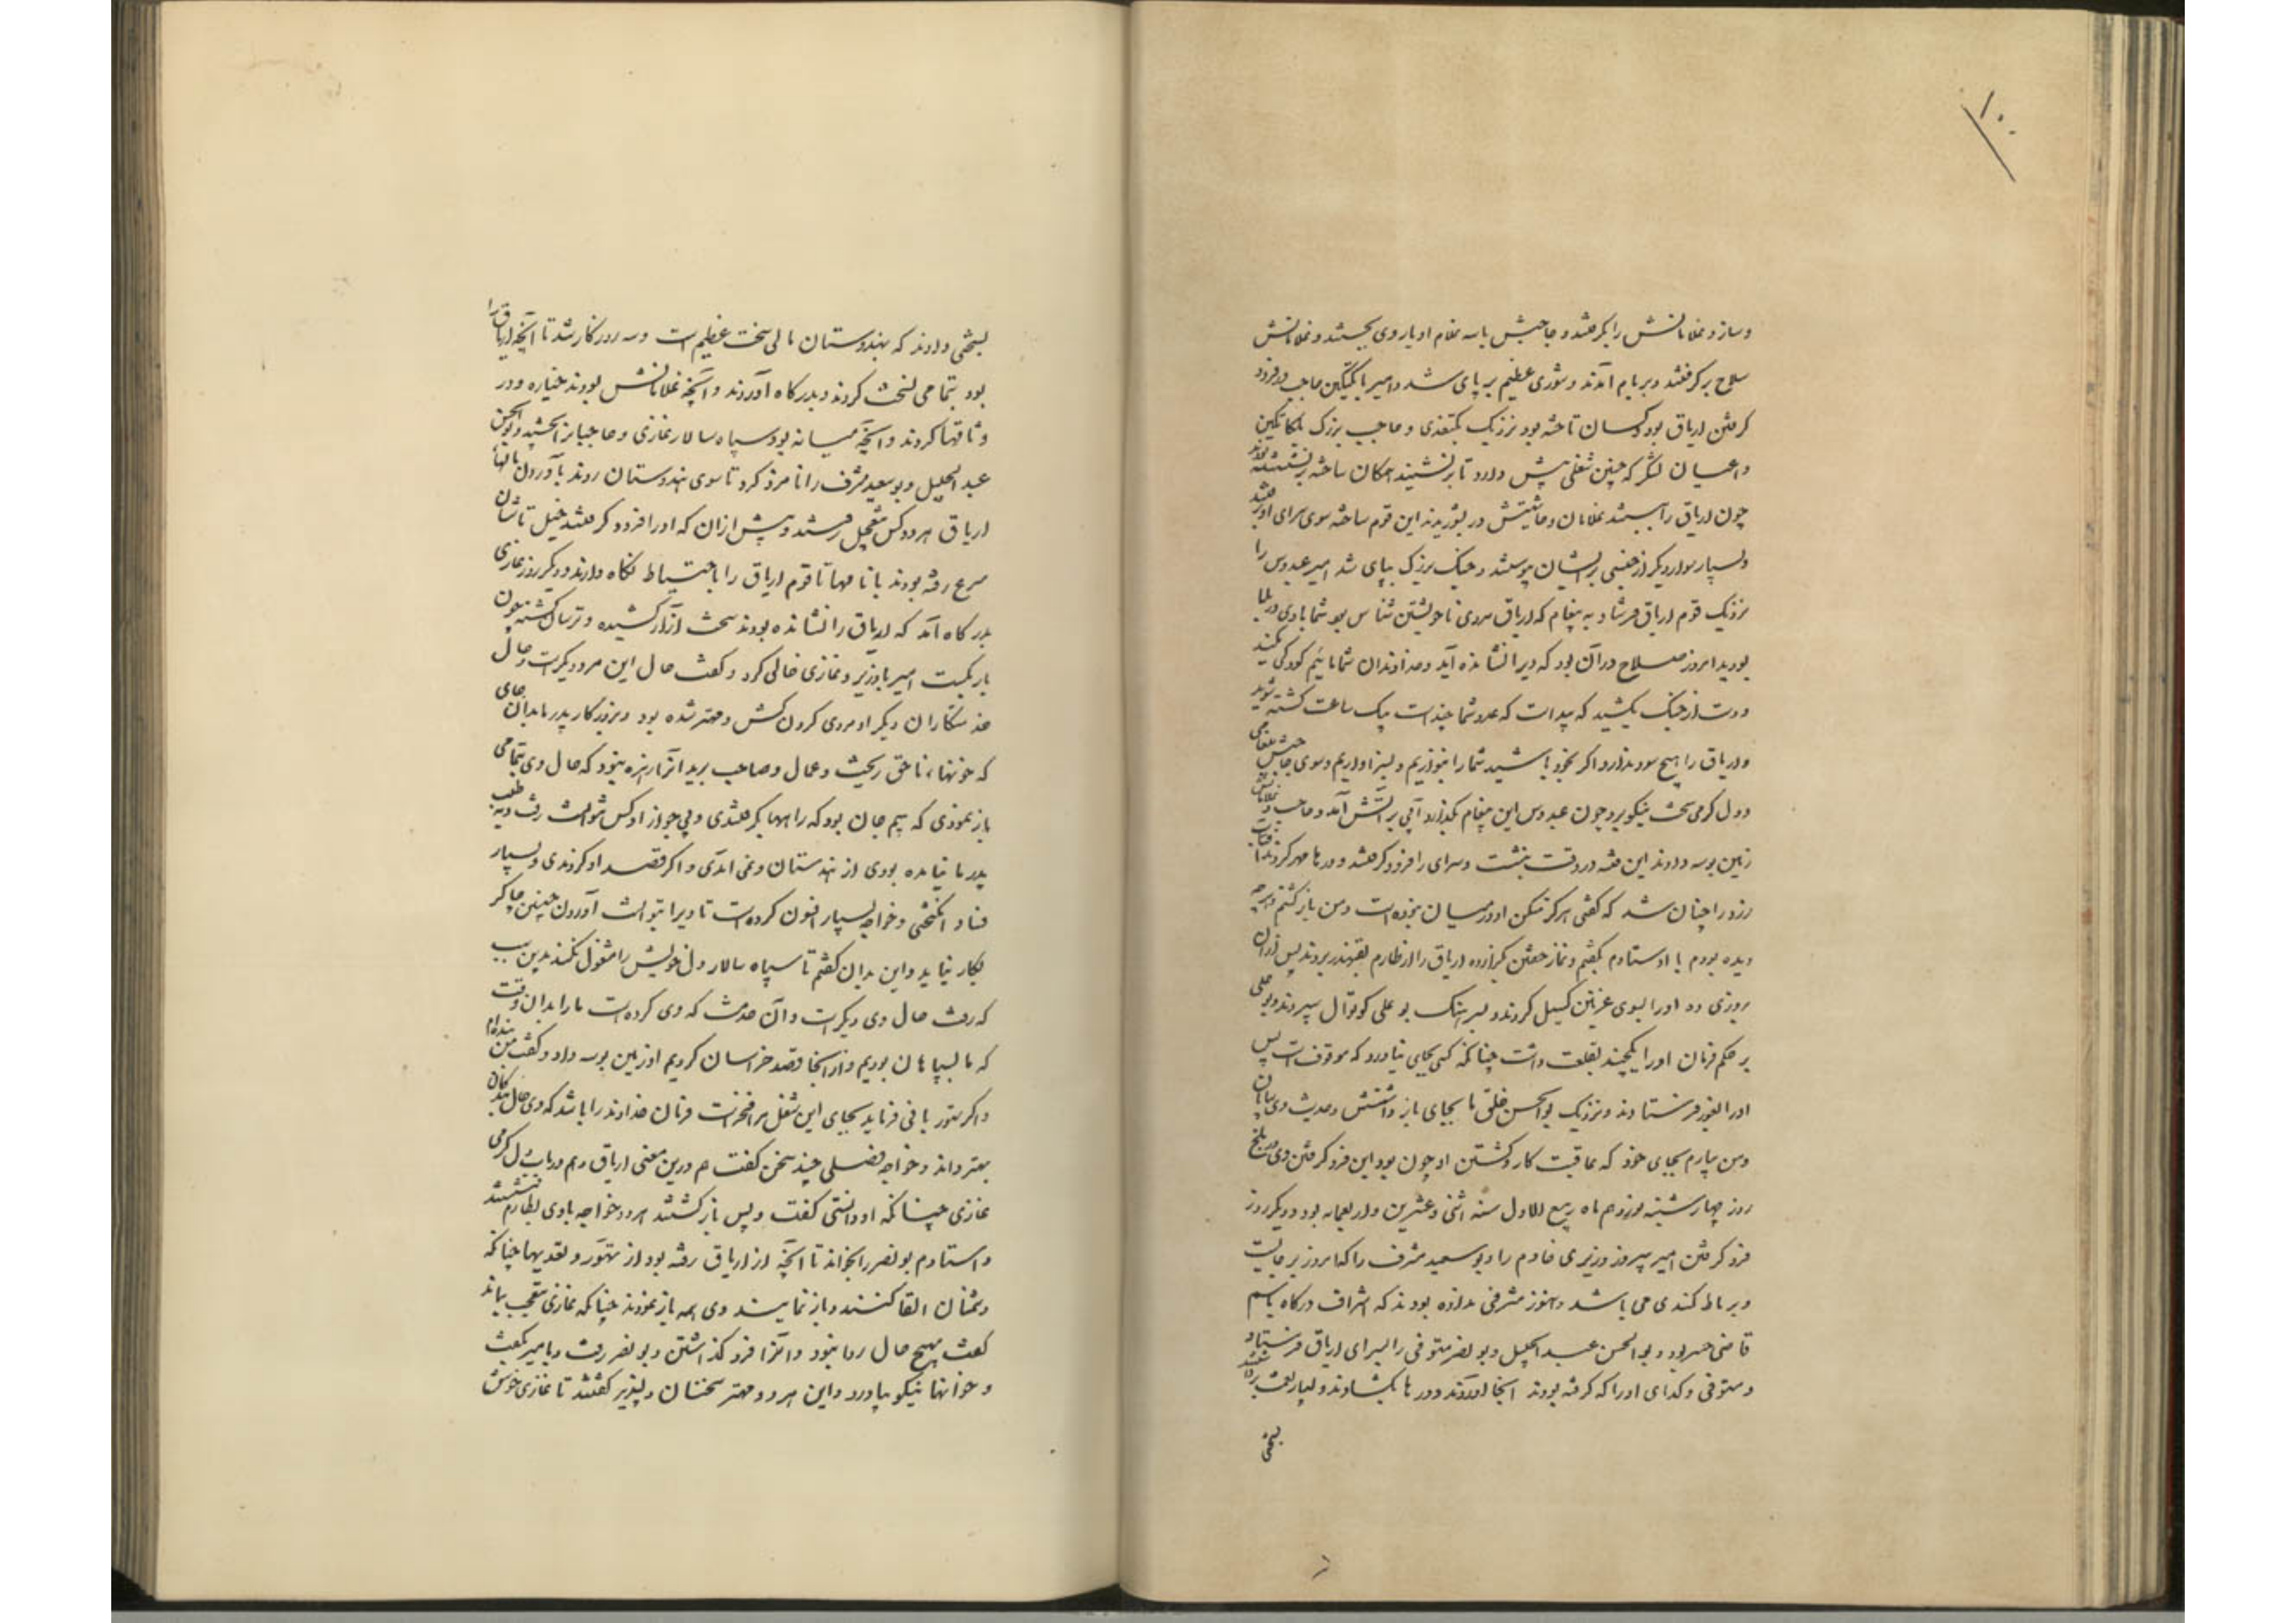 ۱۰۰
وساز و غلامانش را بگرفتند و حاجبش با سه غلام او با روی بجستند و غلامانش
سلاح برگرفتند و بر بام آمدند و شوری عظیم بر پای شد و امیر با بکتگین حاجب در فرود
گرفتن اریاق بود و کسان تاخته بود نزدیک بکتغدی و حاجب بزرگ بلکاتکین
و اعیان لشکر که چنین شغلی پیش دارد تا برنشینند همکان ساخته برنشسته بودند
چون اریاق را ببستند غلامان و حاشیتش در بشوریدند این قوم ساخته سوی سرای او رفتند
و بسیار سوار دیگر از هر جنسی بر ایشان پیوستند و جنگ بزرگ بپای شد امیر عبدوس را
نزدیک قوم اریاق فرستاد به پیغام که اریاق مردی ناخویشتن شناس بود شما با وی در بلا
بودید امروز صلاح در آن بود که ویرا نشانده آید و خداوندان شما مائیم کودکی مکنید
و دست از جنگ بکشید که پیداست که عدد شما چندست بیک ساعت کشته شوید
و اریاق را هیچ سود ندارد اگر بخود باشید شما را بنوازیم و بسزا داریم و سوی حاجبش پیغامی
و دل گرمی سخت نیکو برد چون عبدوس این پیغام بگذارد آبی بر آتش آمد و حاجب و غلامانش
زمین بوسه دادند این فتنه در وقت بنشست و سرای را فرود گرفتند و درها مهر کردند و آفتاب
زرد را چنان شد که گفتی هرگز مسکن او در میان نبوده است و من بازگشتم و هرچه
دیده بودم با اوستادم بگفتم و نماز خفتن گزارده اریاق را از طارم بقهندز بردند پس از آن
بروزی ده او را بسوی غزنین گسیل کردند و بسرهنگ بو علی کوتوال سپردند و بو علی
بر حکم فرمان او را یکچند بقلعت داشت چنانکه کسی بجای نیاورد که موقوف است پس
او را بغور فرستادند نزدیک بوالحسن خلف تا بجای باز داشتش و حدیث وی بپایان
و من بیارم بجای خود که عاقبت کار و کشتن او چون بود این فرو گرفتن وی در بلخ
روز چهارشنبه نوزدهم ماه ربیع الاول سنه اثنی و عشرین و اربعمایه بود و دیگر روز
فرو گرفتن امیر پیروز وزیری خادم را و بو سعید مشرف را که امروز بر جایست
و برباط کندی می باشد و هنوز مشرفی نداده بودند که اشراف درگاه باسم
قاضی خسرو بود و بوالحسن عبد الجلیل و بو نصر مستوفی را بسرای اریاق فرستاد
و مستوفی و کدخدای او را که گرفته بودند آنجا آوردند و درها بگشادند و بسیار نعمت برداشتند
بسختی
بسختی دادند که بهندوستان مالی سخت عظیم است و سه روز کار شد تا آنچه اریاق را
بود بتمامی نسخت کردند و بدرگاه آوردند و آنچه غلامانش بودند خیاره و در
وثاقها کردند و آنچه میانه بود سپاه سالار غازی و حاجبان را بخشید و بوالحسن
عبد الجلیل و بو سعید مشرف را نامزد کرد تا سوی هندوستان روند بآوردن مالهای
اریاق هر دو کس معجل برفتند و پیش از آن که او را فرو گرفتند خیل تاشان
مسرع رفته بودند با نامها تا قوم اریاق را باحتیاط نگاه دارند و دیگر روز غازی
بدرگاه آمد که اریاق را نشانده بودند سخت آزار کشیده و ترسان گشته چون
بار بگسست امیر با وزیر و غازی خالی کرد و گفت حال این مرد دیگرست و حال
خدمتکاران دیگر او مردی گردن کش و مهتر شده بود و بروزگار پدر ما بدان جای
که خونها، ناحق ریخت و عمال و صاحب بریدانرا زهره نبود که حال وی بتمامی
باز نمودی که بیم جان بود که راهها بگرفتندی و بی جواز او کس نتوانست رفت و به طلب
پدر ما نیامده بودی از هندستان و نمی آمدی و اگر قصد او کردندی بسیار
فساد انگیختی و خواجه بسیار افسون کرده است تا ویرا بتوانست آوردن چنین چاکر
بکار نیاید و این بدان گفتم تا سپاه سالار دل خویش را مشغول نکند بدین سبب
که رفت حال وی دیگر است و آن خدمت که وی کرده است ما را بدان وقت
که ما بسپاهان بودیم و از آنجا قصد خراسان کردیم او زمین بوسه داد و گفت من بنده‌ام
و اگر ستور بانی فرماید بجای این شغل مرا فخرست فرمان خداوند را باشد که وی حال بندگان
بهتر داند و خواجه فصلی چند سخن گفت هم درین معنی اریاق و هم در باب دل گرمی
غازی چنانکه او دانستی گفت و پس بازگشتند هر دو خواجه با وی بطارم نشستند
و استادم بو نصر را بخواند تا آنچه از اریاق رفته بود از تهور و تعدیها چنانکه
دشمنان القا کنند و باز نمایند وی همه باز نمودند چنانکه غازی بتعجب بماند
گفت بهیچ حال روا نبود و آنرا فرو گذاشتن و بو نصر رفت و با امیر بگفت
و جوابها نیکو بیاورد و این هر دو مهتر سخنان دلپذیر گفتند تا غازی خوش